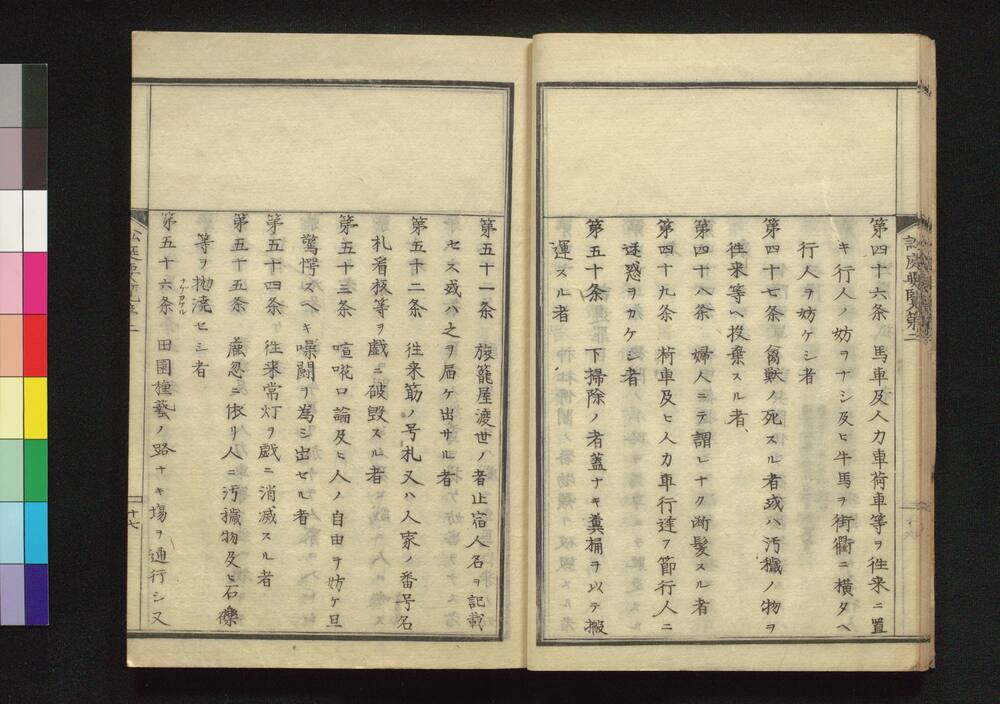 第四十六条　馬車及人力車荷車等ヲ往来ニ置
キ行人ノ妨ヲナシ及ヒ牛馬ヲ街衢ニ横タヘ
行人ヲ妨ケシ者
第四十七条　禽獣ノ死スル者或ハ汚穢ノ物ヲ
往来等ヘ投棄スル者、
第四十八条　婦人ニテ謂レナク断髪スル者
第四十九条　荷車及ヒ人力車行逢フ節行人ニ
迷惑ヲカケシ者
第五十条　下掃除ノ者蓋ナキ糞桶ヲ以テ搬
運スル者
第五十一条　旅籠屋渡世ノ者止宿人名ヲ記載
セス或ハ之ヲ届ケ出サル者
第五十二条　往来筋ノ号札又ハ人家ノ番号名
札看板等ヲ戯ニ破毀スル者
第五十三条　喧嘩口論及ヒ人ノ自由ヲ妨ケ且
驚愕スヘキ噪閙ヲ為シ出セル者
第五十四条　往来常灯ヲ戯ニ消滅スル者
第五十五条　麁忽ニ依リ人ニ汚穢物及ヒ石礫
等ヲ抛澆セシ者
第五十六条　田園種藝ノ路ナキ場ヲ通行シ又
十七